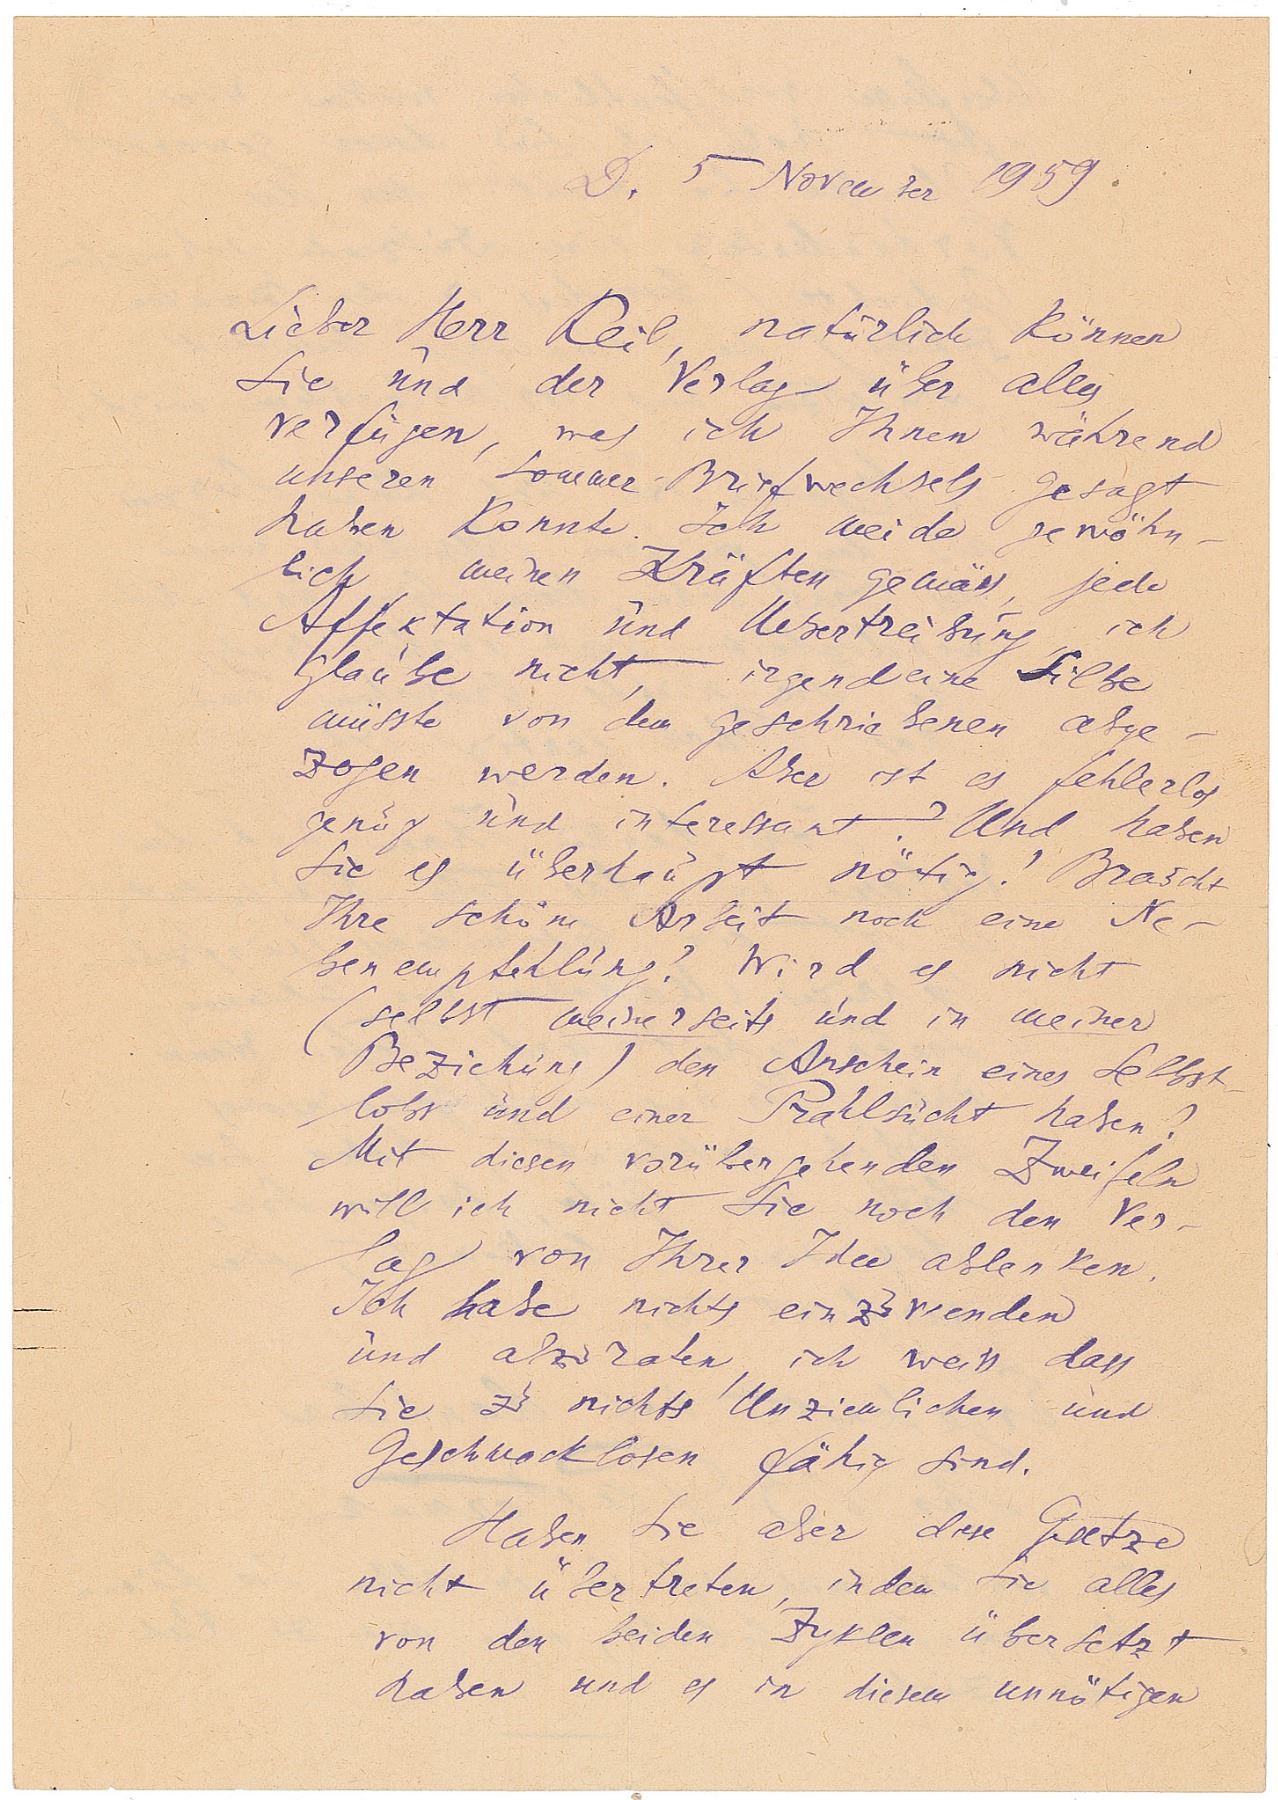 D. 5 November 1959.
Lieber Herr Reil, natürlich können
Sie und der Verlag über alles
verfügen, was ich Ihnen während
unseren Sommer-Briefwechsels gesagt
haben konnte. Ich meide gewöhn-
lich, meinen Kräften gemäss, jede
Affektation und Uebertreibung, ich
glaube nicht, irgendeine Silbe
müsste von dem geschriebenen abge-
zogen werden. Aber ist es fehlerlos
genug und interessant? Und haben
Sie es überhaupt nötig? Braucht
Ihre schöne Arbeit noch eine Ne-
benempfehlung? Wird es nicht
(selbst meinerseits und in meiner
Beziehung) den Anschein eines Selbst-
lobs und einer Prahlsucht haben?
Mit diesen vorübergehenden Zweifeln
will ich nicht Sie noch den Ver-
lag von Ihrer Idee ablenken.
Ich habe nichts einzuwenden
und abzuraten, ich weiss dass
Sie zu nichts Unziemlichen und
Geschmacklosen fähig sind.
Haben Sie aber diese Gesetze
nicht übertreten, indem Sie alles
von den beiden Zyklen übersetzt
haben und es in diesem unnötigen